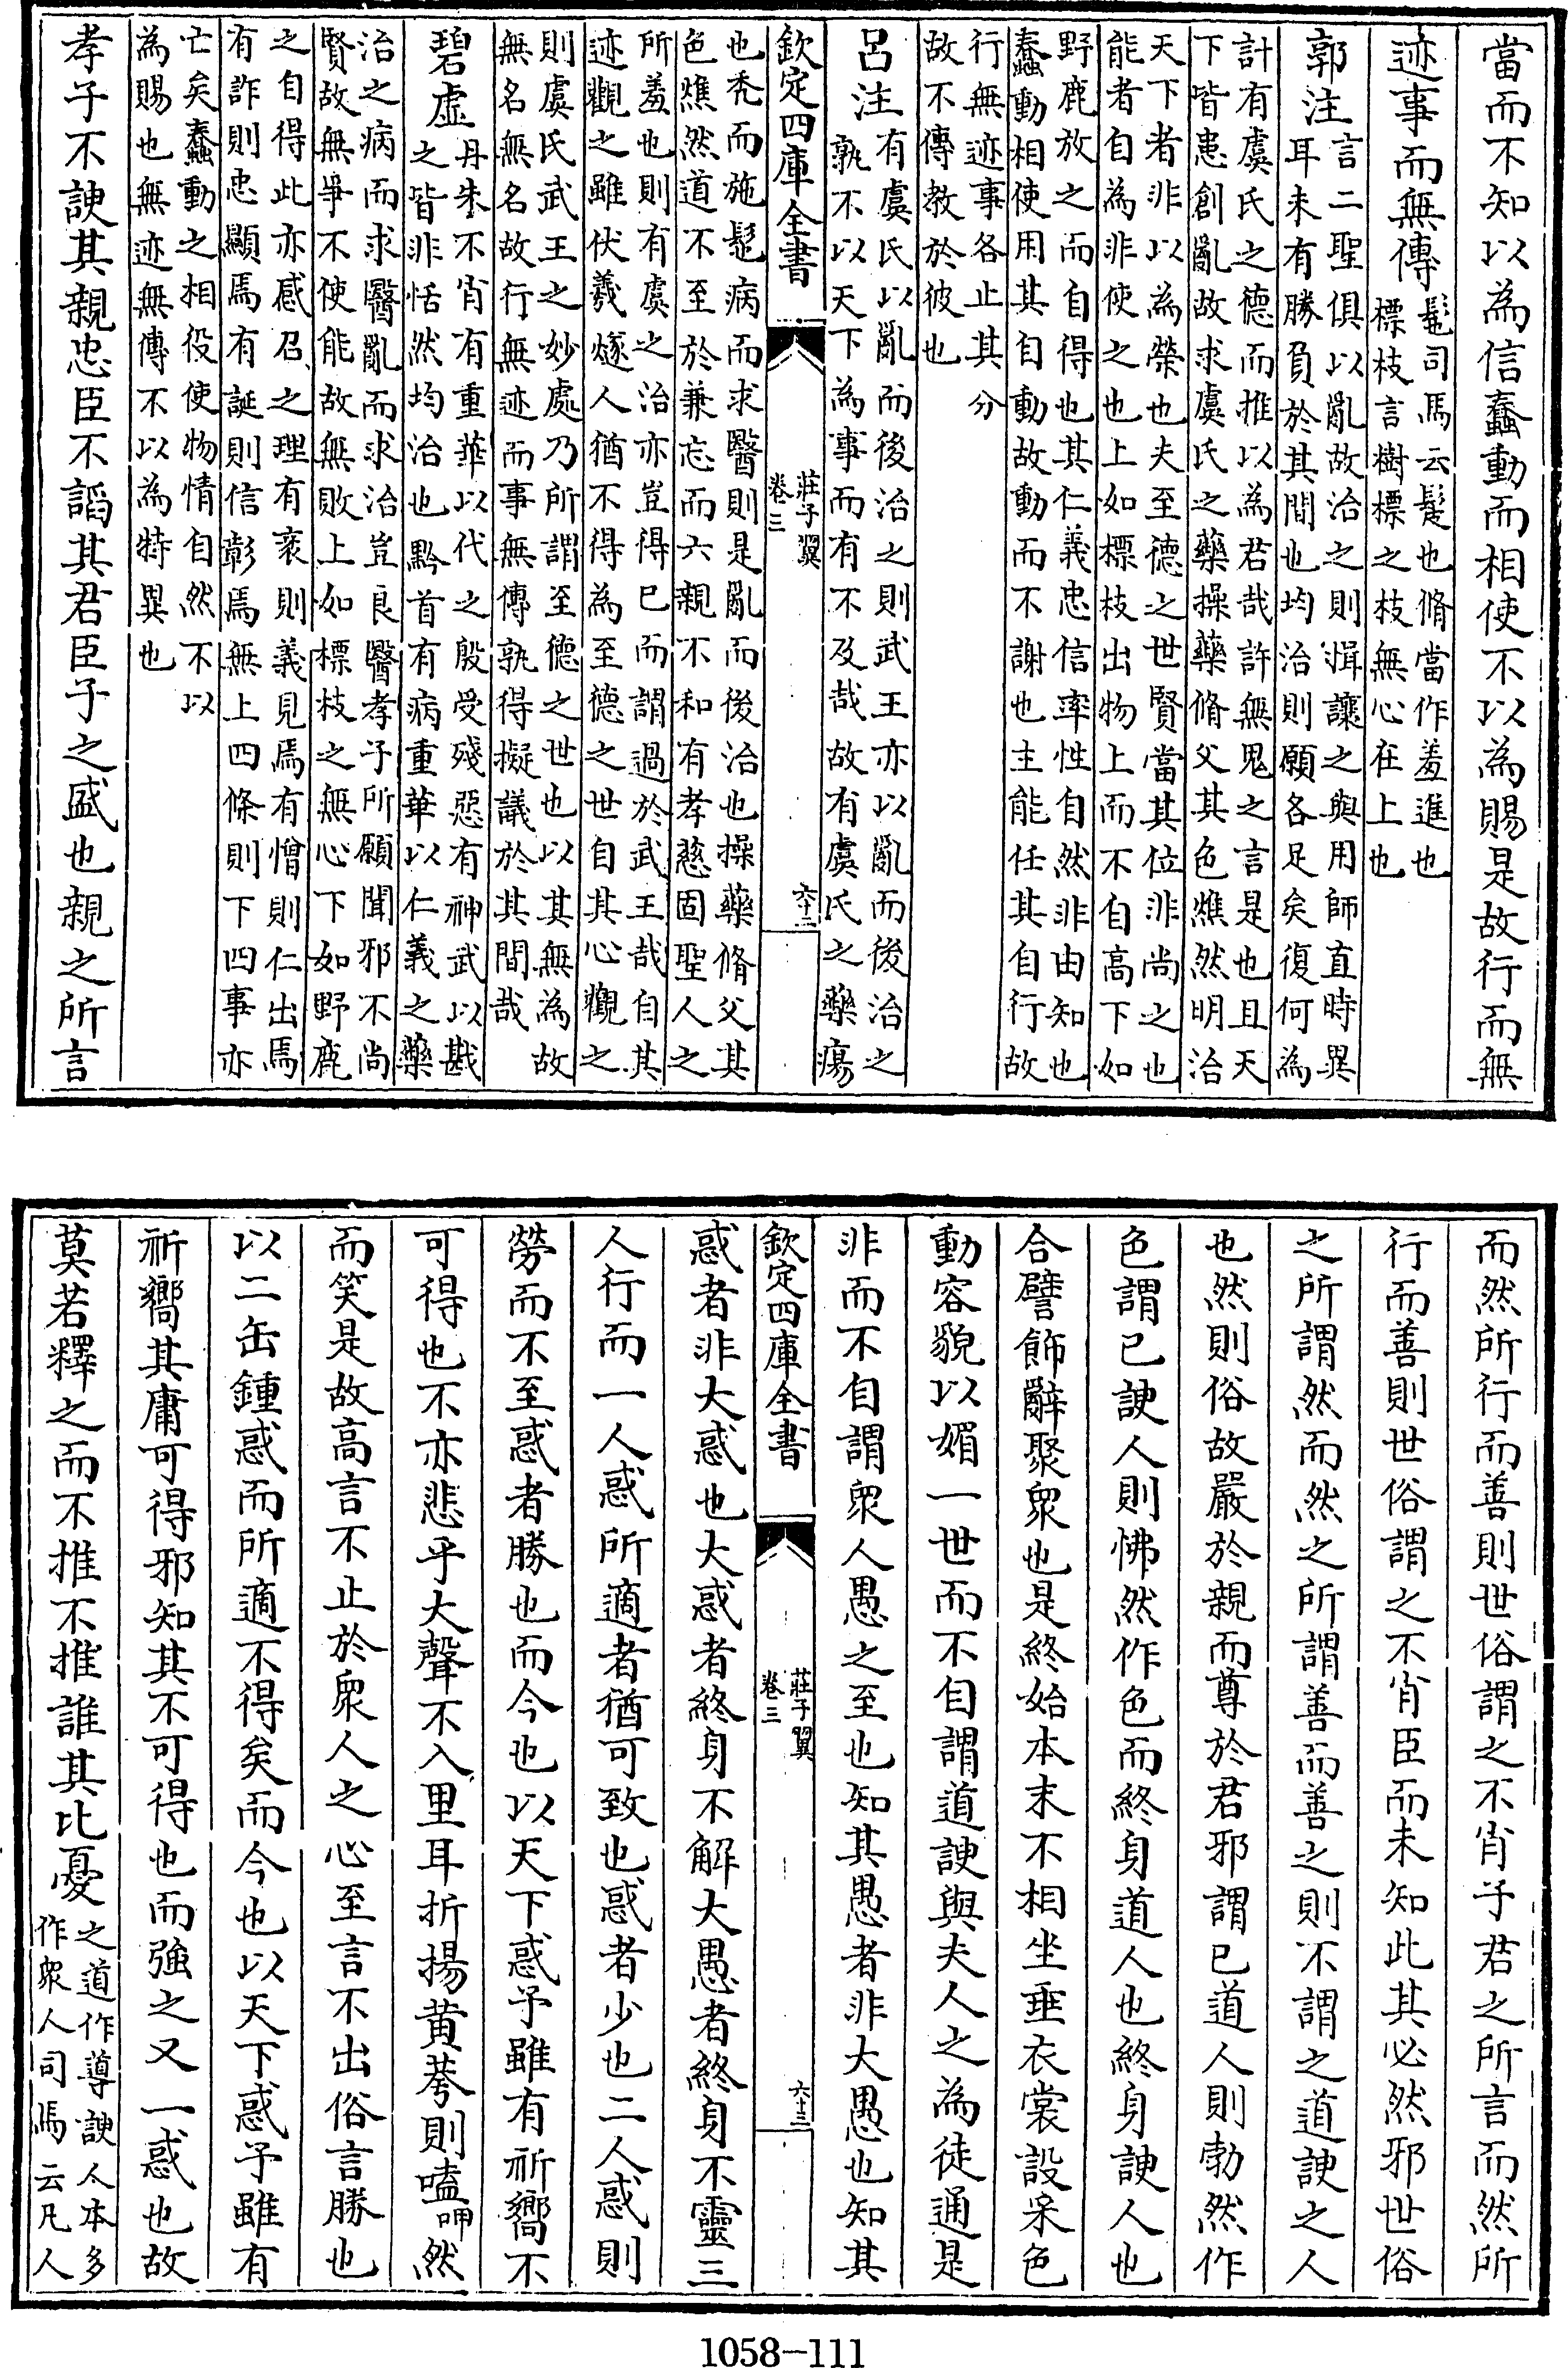 當而不知以為信蠢動而相使不以為賜是故行而無
迹事而無傳
髢司馬云髲也脩當作羞進也
標枝言樹標之枝無心在上也
郭注
言二聖俱以亂故治之則揖讓之與用師直時異
耳未有勝負於其間也均治則願各足矣復何為
計有虞氏之德而推以為君哉許無鬼之言是也且天
下皆患創亂故求虞氏之藥操藥脩父其色燋然明治
天下者非以為榮也夫至德之世賢當其位非尚之也
能者自為非使之也上如標枝出物上而不自高下如
野鹿放之而自得也其仁義忠信率性自然非由知也
蠢動相使用其自動故動而不謝也主能任其自行故
行無迹事各止其分
故不傳教於彼也
呂注
有虞氏以亂而後治之則武王亦以亂而後治之
孰不以天下為事而有不及哉故有虞氏之藥瘍
欽定四庫全書
莊子翼
卷三
六十二
也禿而施髢病而求醫則是亂而後治也操藥脩父其
色燋然道不至於兼忘而六親不和有孝慈固聖人之
所羞也則有虞之治亦豈得已而謂過於武王哉自其
迹觀之雖伏羲燧人猶不得為至德之世自其心觀之
則虞氏武王之妙處乃所謂至德之世也以其無為故
無名無名故行無迹而事無傳孰得擬議於其間哉
碧虛
丹朱不肖有重華以代之殷受殘惡有神武以戡
之皆非恬然均治也黔首有病重華以仁義之藥
治之病而求醫亂而求治豈良醫孝子所願聞邪不尚
賢故無爭不使能故無敗上如標枝之無心下如野鹿
之自得此亦感召之理有衰則義見焉有憎則仁出焉
有詐則忠顯焉有誕則信彰焉無上四條則下四事亦
亡矣蠢動之相役使物情自然不以
為賜也無迹無傳不以為特異也
孝子不諛其親忠臣不諂其君臣子之盛也親之所言
而然所行而善則世俗謂之不肖子君之所言而然所
行而善則世俗謂之不肖臣而未知此其必然邪世俗
之所謂然而然之所謂善而善之則不謂之道諛之人
也然則俗故嚴於親而尊於君邪謂已道人則勃然作
色謂已諛人則怫然作色而終身道人也終身諛人也
合譬飾辭聚衆也是終始本末不相坐垂衣裳設采色
動容貌以媚一世而不自謂道諛與夫人之為徒通是
非而不自謂衆人愚之至也知其愚者非大愚也知其
欽定四庫全書
莊子翼
卷三
六十三
惑者非大惑也大惑者終身不解大愚者終身不靈三
人行而一人惑所適者猶可致也惑者少也二人惑則
勞而不至惑者勝也而今也以天下惑予雖有祈嚮不
可得也不亦悲乎大聲不入里耳折揚黃荂則嗑呷然
而笑是故高言不止於衆人之心至言不出俗言勝也
以二缶鍾惑而所適不得矣而今也以天下惑予雖有
祈嚮其庸可得邪知其不可得也而強之又一惑也故
莫若釋之而不推不推誰其比憂
之道作導諛人本多
作衆人司馬云凡人
1058-111